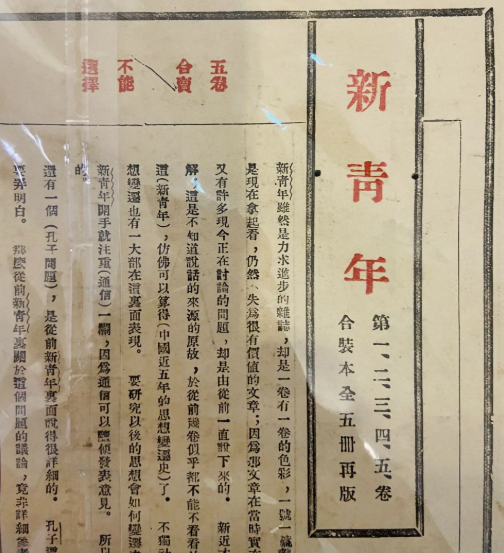 新青年
第一、二、三、四、五、卷
合裝本全五冊再版
五卷
合賣
不能
選擇
新青年雖然是力求進步的雜誌，却是一卷有一卷的色彩，一號一號
是現在拿起看，仍然不失爲很有價值的文章；因爲那文章在當時實
又有許多現今正在討論的問題，却是由從前一直說下來的。　新近
解，這是不知道說話的來源的原故，於從前幾卷似乎都不能不看看
這（新青年），仿佛可以算得（中國近五年的思想變遷史）了。　不獨
想變遷也有一大部在這裏面表現。　要研究以後的思想會如何變遷
新青年開手就注重（通信）一欄，因爲通信可以隨便發表意見。　所
的。
還有一個（孔子問題），是從前新青年裏面說得很詳細的。　孔子
要弄明白。　那麼從前新青年裏關於這個問題的議論，竟非詳細參考